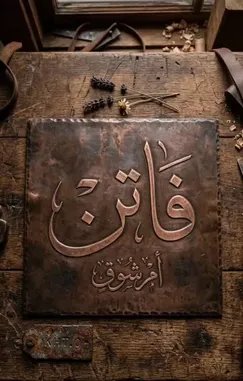 فَاتن
أم شُوق